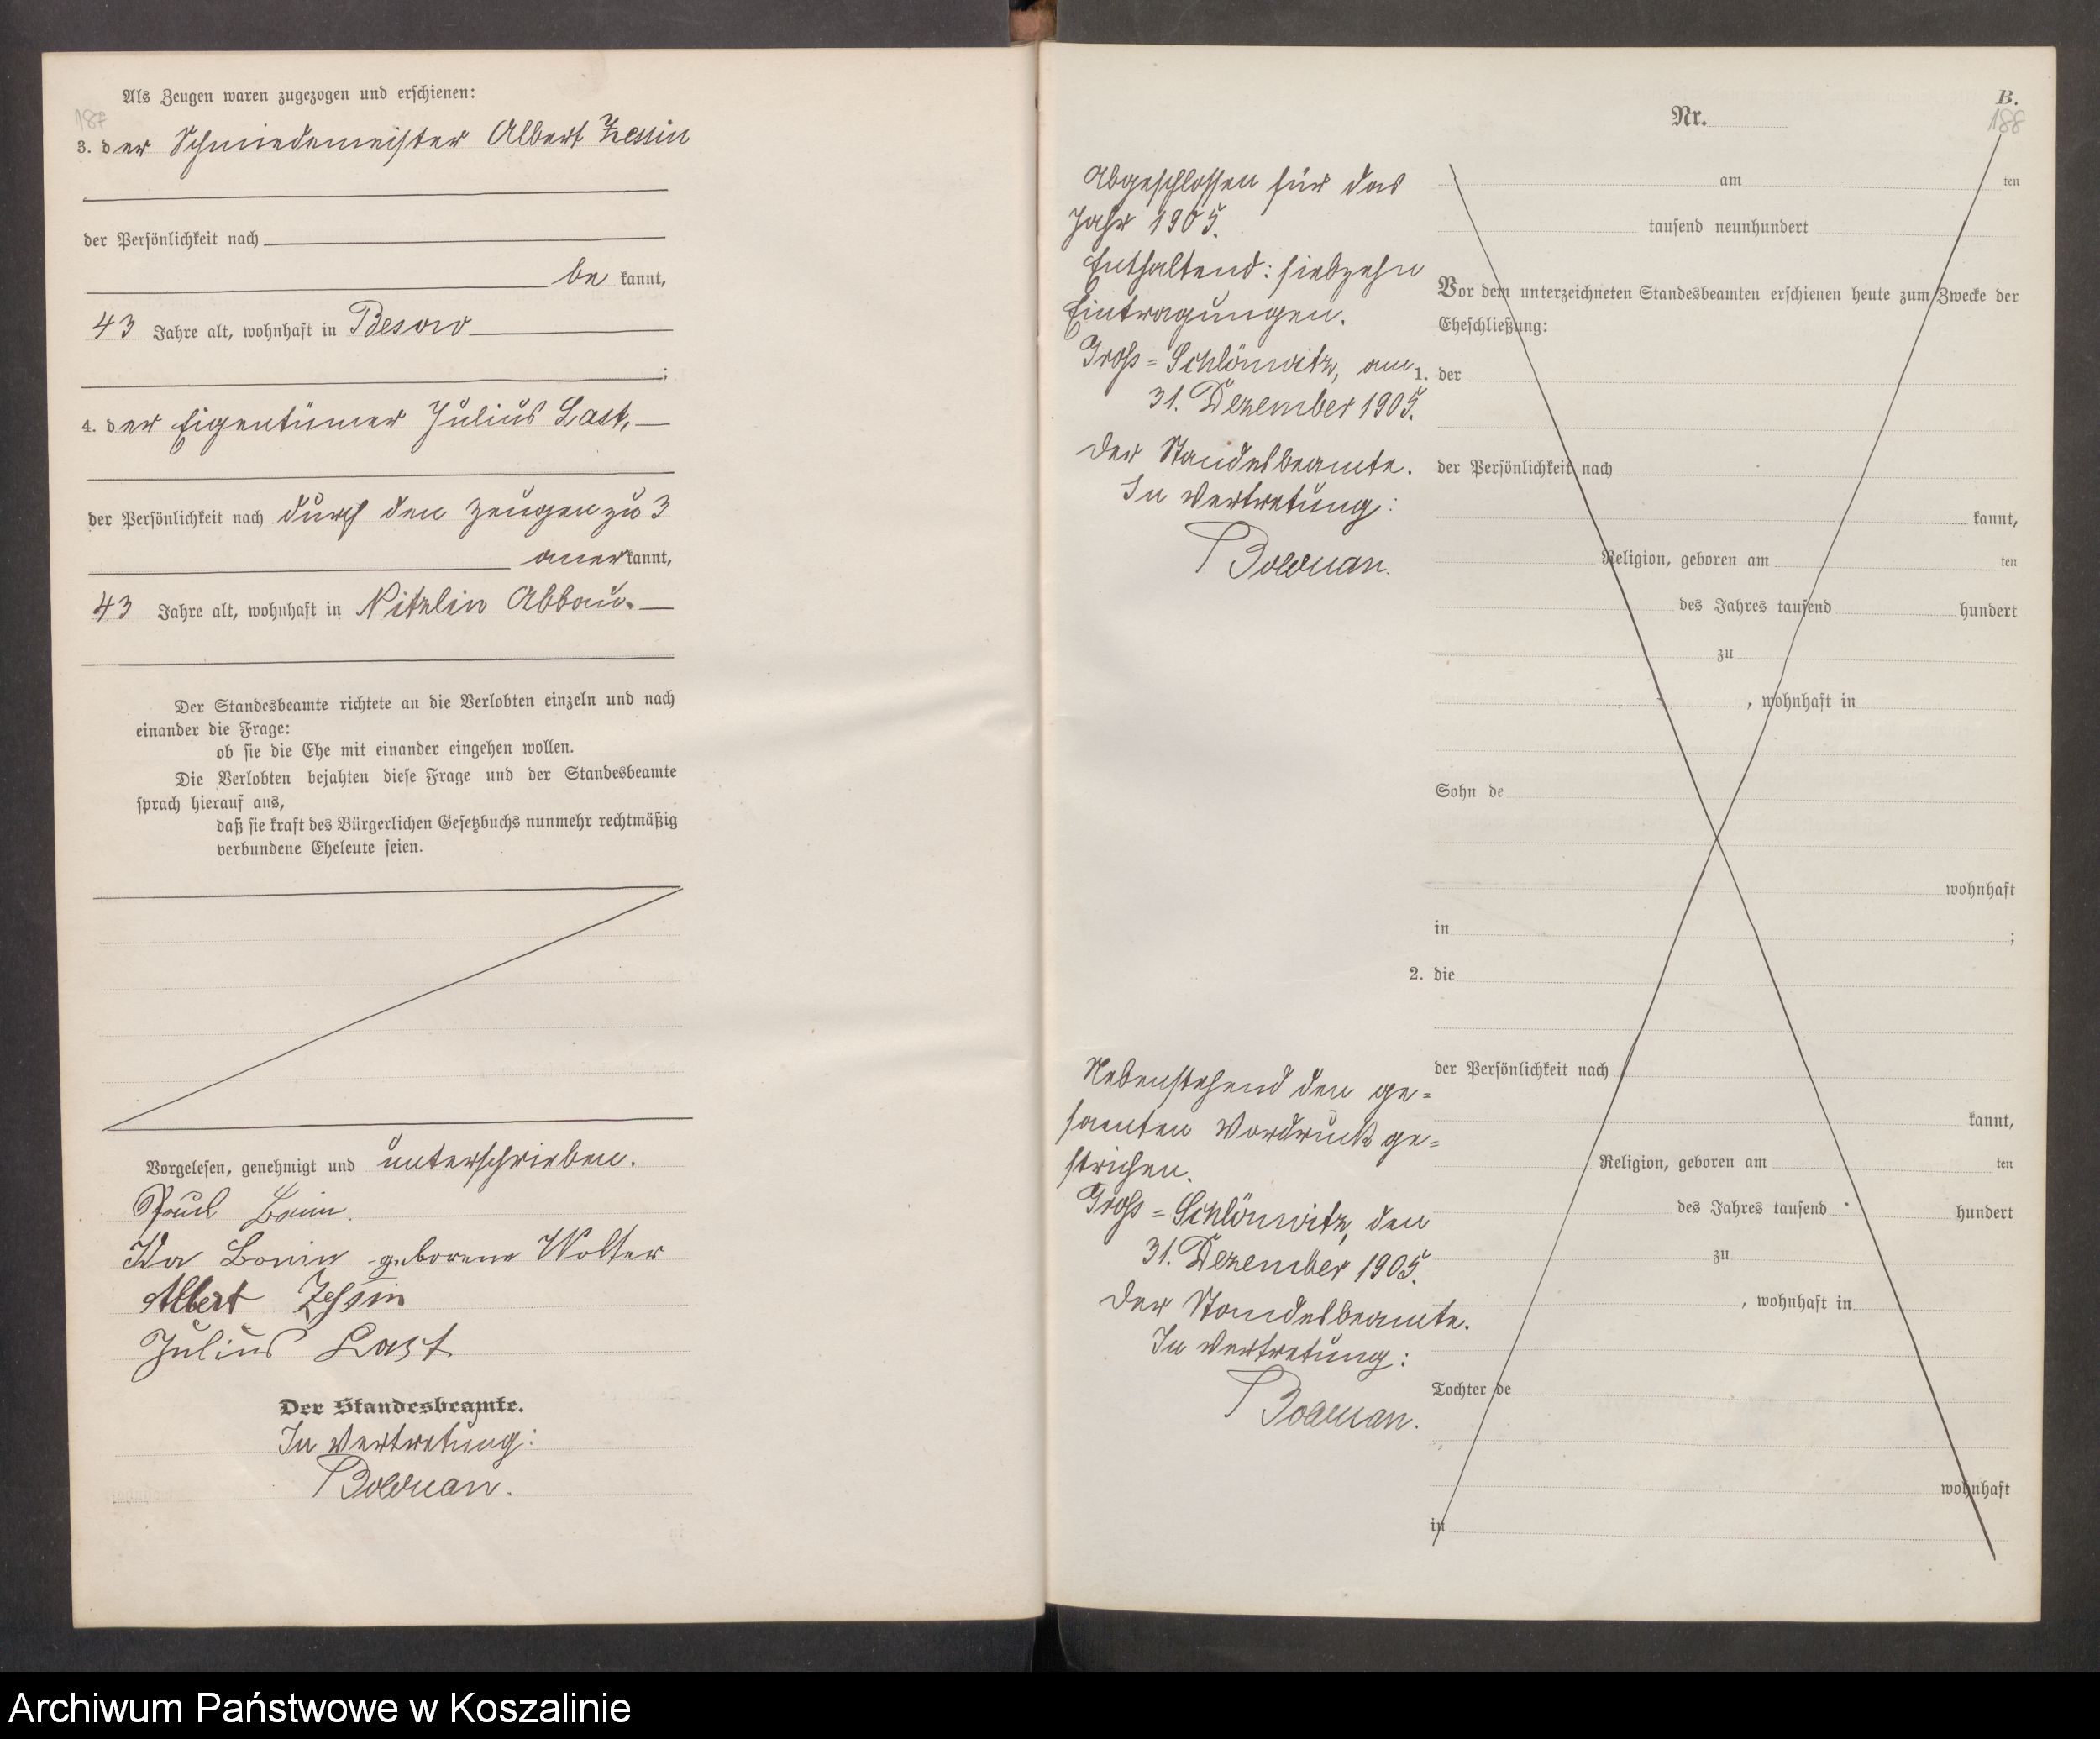 187
Als Zeugen waren zugezogen und erschienen:
3. der Schmiedemeister Albert Zessin
der Persönlichkeit nach
be kannt,
43 Jahre alt, wohnhaft in Besow
;
4. der Eigentümer Julius Last,
der Persönlichkeit nach durch den Zeugen zu 3
anerkannt,
43 Jahre alt, wohnhaft in Nitzlin Abbau.
Der Standesbeamte richtete an die Verlobten einzeln und nach
einander die Frage:
ob sie die Ehe mit einander eingehen wollen.
Die Verlobten bejahten diese Frage und der Standesbeamte
sprach hierauf aus,
daß sie kraft des Bürgerlichen Gesetzbuchs nunmehr rechtmäßig
verbundene Eheleute seien.
Vorgelesen, genehmigt und unterschrieben.
Paul Bonin.
Ida Bonin geborene Wolter
Albert Zessin
Julius Last
Der Standesbeamte.
In Vertretung:
Bolduan.
B.
188
Nr.
Abgeschlossen für das
Jahr 1905.
Enthaltend: siebzehn
Eintragungen.
Gross=Schlönwitz, am
31. Dezember 1905.
Der Standesbeamte.
In Vertretung:
Bolduan.
am ten
tausend neunhundert
Vor dem unterzeichneten Standesbeamten erschienen heute zum Zwecke der
Eheschließung:
1. der
der Persönlichkeit nach
kannt,
Religion, geboren am ten
des Jahres tausend hundert
zu
, wohnhaft in
Sohn de
wohnhaft
in ;
2. die
der Persönlichkeit nach
kannt,
Religion, geboren am ten
des Jahres tausend hundert
zu
, wohnhaft in
Tochter de
wohnhaft
in
Nebenstehend den ge=
samten Vordruck ge=
strichen.
Gross=Schlönwitz, den
31. Dezember 1905.
Der Standesbeamte.
In Vertretung:
Bolduan.
Archiwum Państwowe w Koszalinie